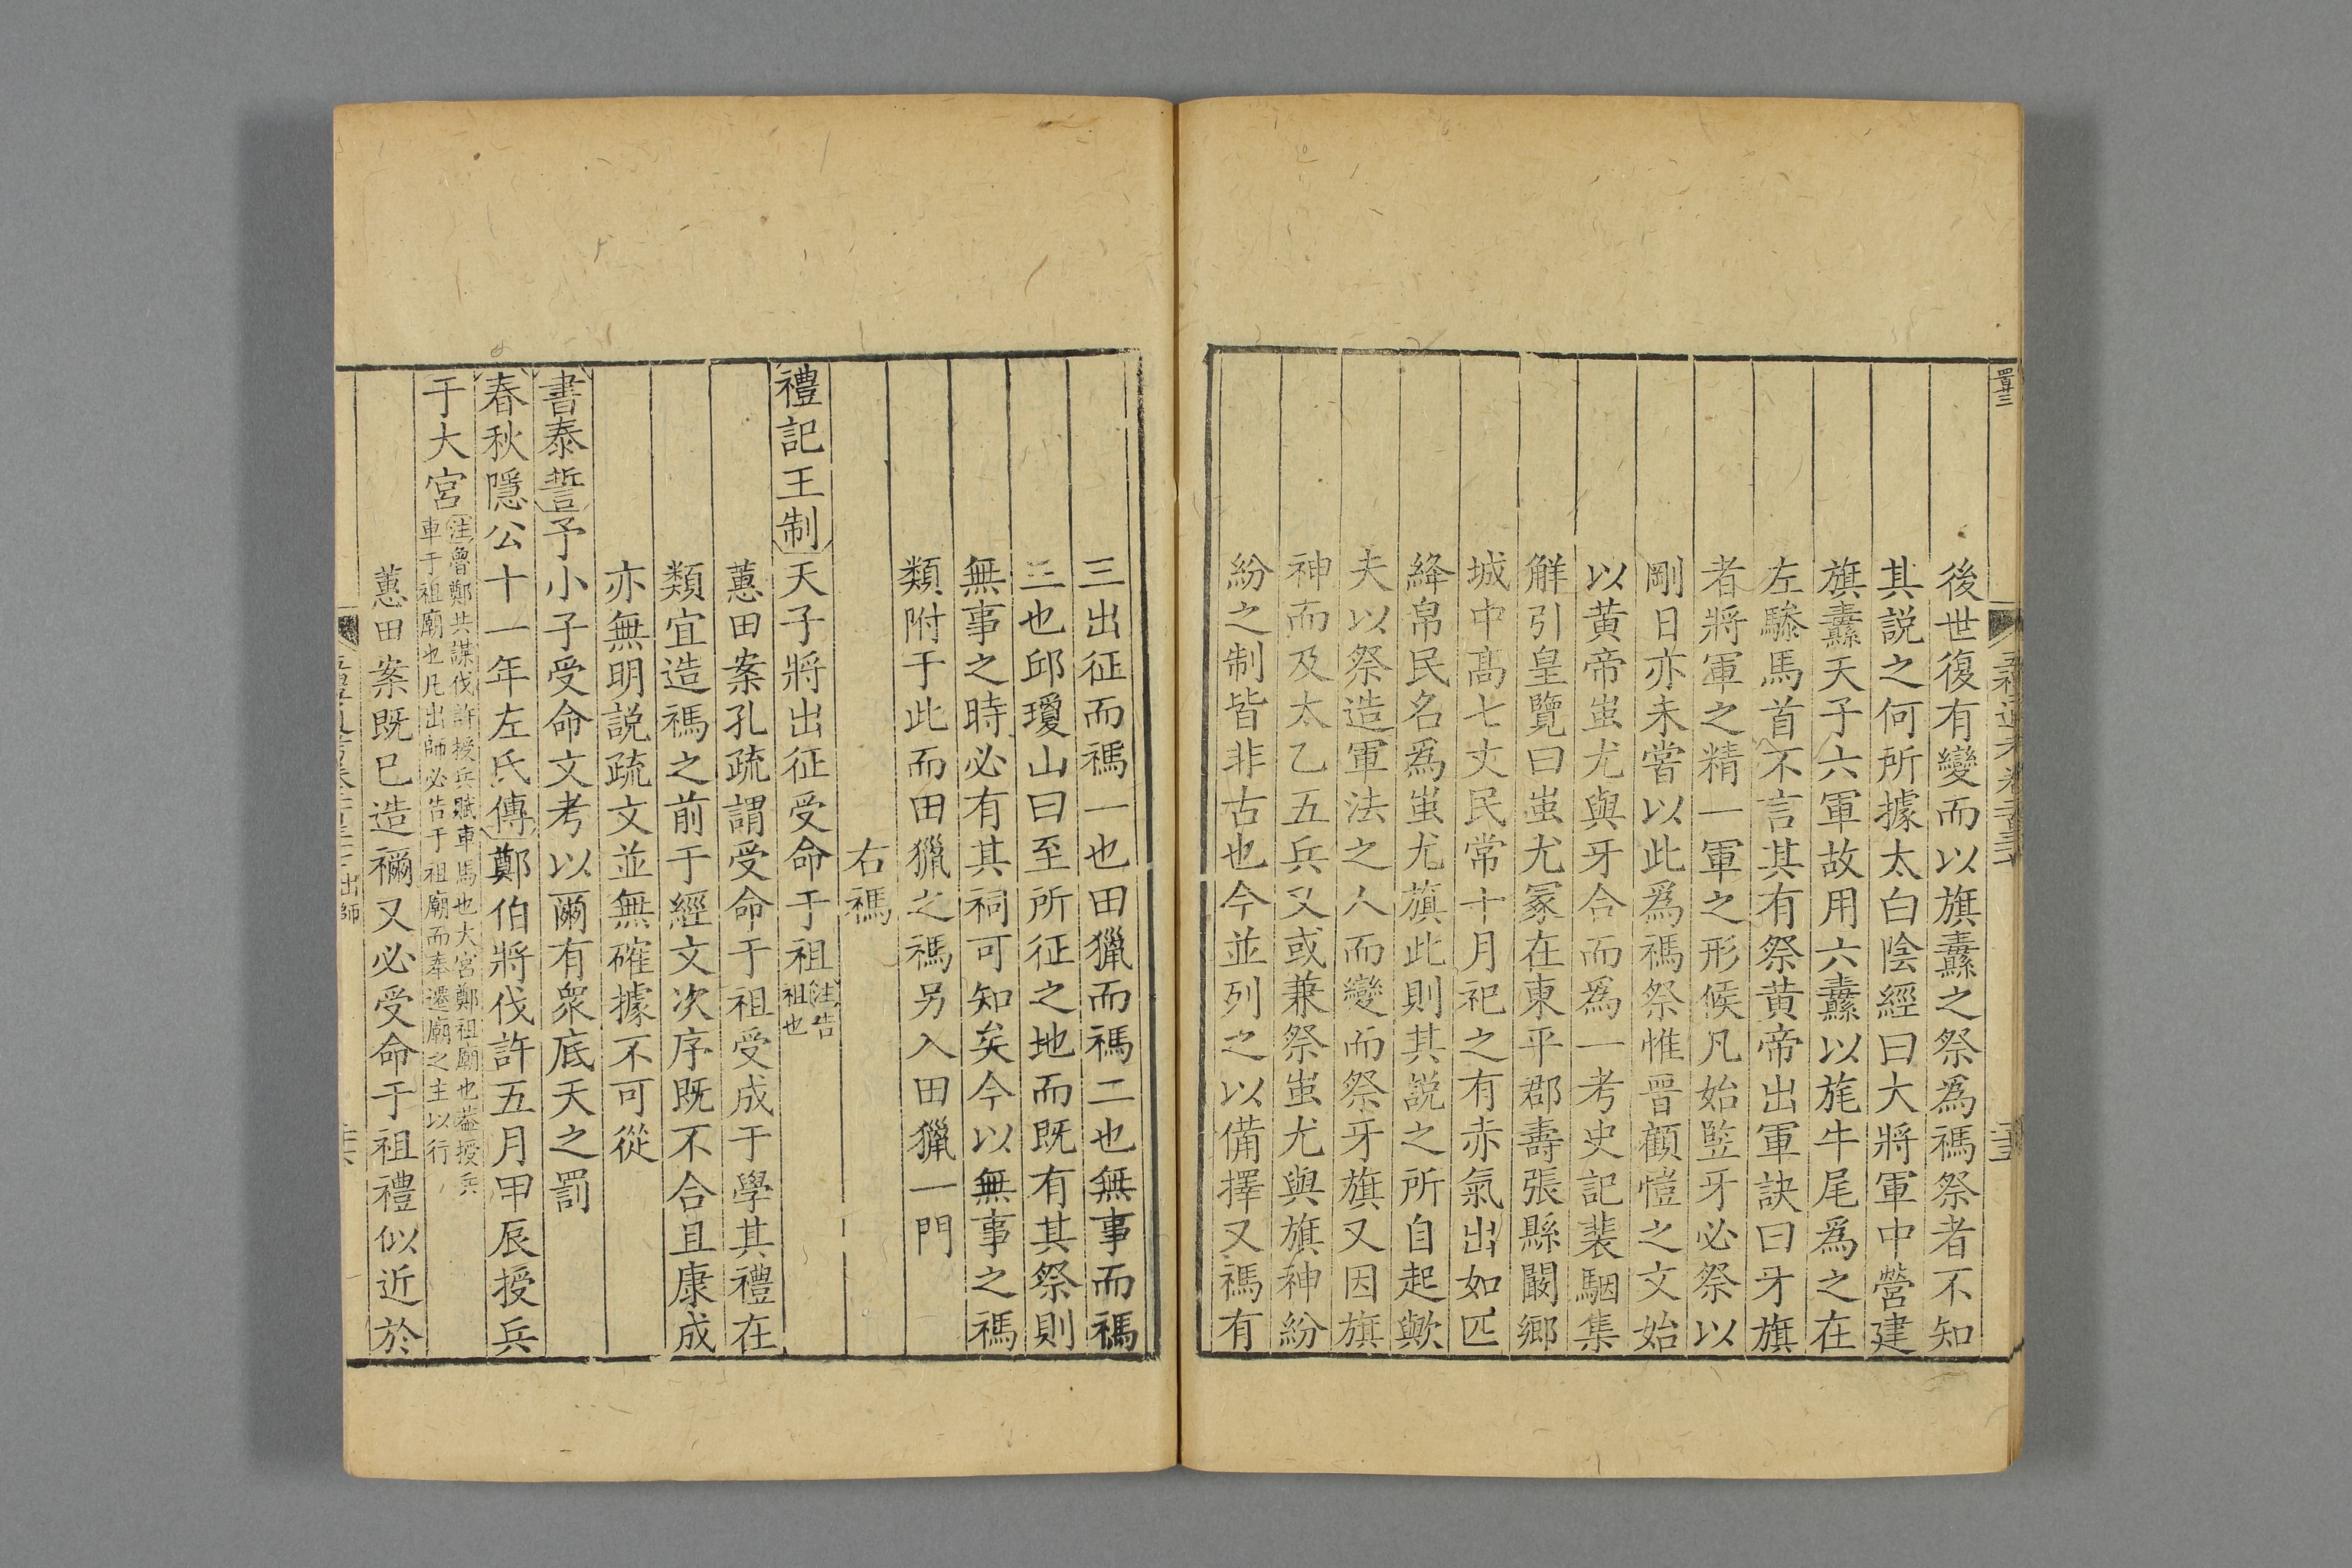 後世復有變而以旗纛之祭爲禡祭者不知
其説之何所據太白陰經曰大將軍中營建
旗纛天子六軍故用六纛以旄牛尾爲之在
左騑馬首不言其有祭黄帝出軍訣曰牙旗
者將軍之精一軍之形候凡始豎牙必祭以
剛日亦未嘗以此爲禡祭惟晉顧愷之文始
以黄帝蚩尤與牙合而爲一考史記裴駰集
解引皇覽曰蚩尤冢在東平郡壽張縣闞鄉
城中高七丈民常十月祀之有赤氣出如匹
絳帛民名爲蚩尤旗此則其説之所自起歟
夫以祭造軍法之人而變而祭牙旗又因旗
神而及太乙五兵又或兼祭蚩尤與旗神紛
紛之制皆非古也今並列之以備擇又禡有
三出征而禡一也田獵而禡二也無事而禡
三也邱瓊山曰至所征之地而既有其祭則
無事之時必有其祠可知矣今以無事之禡
類附于此而田獵之禡另入田獵一門
右禡
禮記王制天子將出征受命于祖注告祖也
蕙田案孔疏謂受命于祖受成于學其禮在
類宜造禡之前于經文次序既不合且康成
亦無明説疏文並無確據不可從
書泰誓予小子受命文考以爾有衆底天之罰
春秋隱公十一年左氏傳鄭伯將伐許五月甲辰授兵
于大宮注魯鄭共謀伐許授兵賦車馬也大宮鄭祖廟也葢授兵車于祖廟也凡出師必告于祖廟而奉遷廟之主以行
蕙田案既已造禰又必受命于祖禮似近於